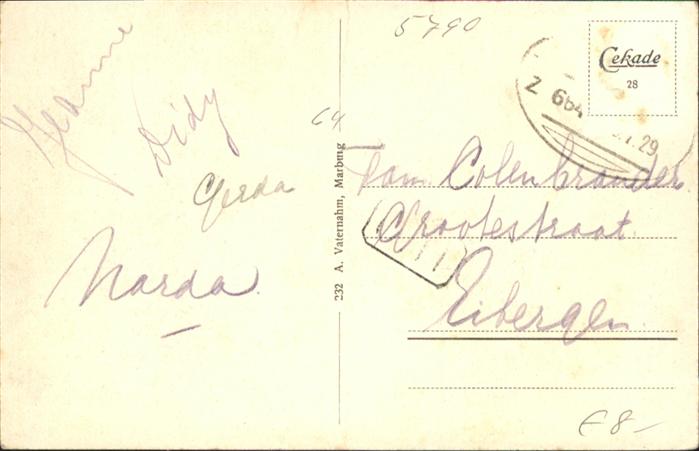 Jeanne
Didy
Gerda
Narda
5790
64
232 A. Vaternahm, Marburg
Cekade
28
Z 664
.29
Fam. Colenbrander
Grootestraat
Eibergen
€ 8-